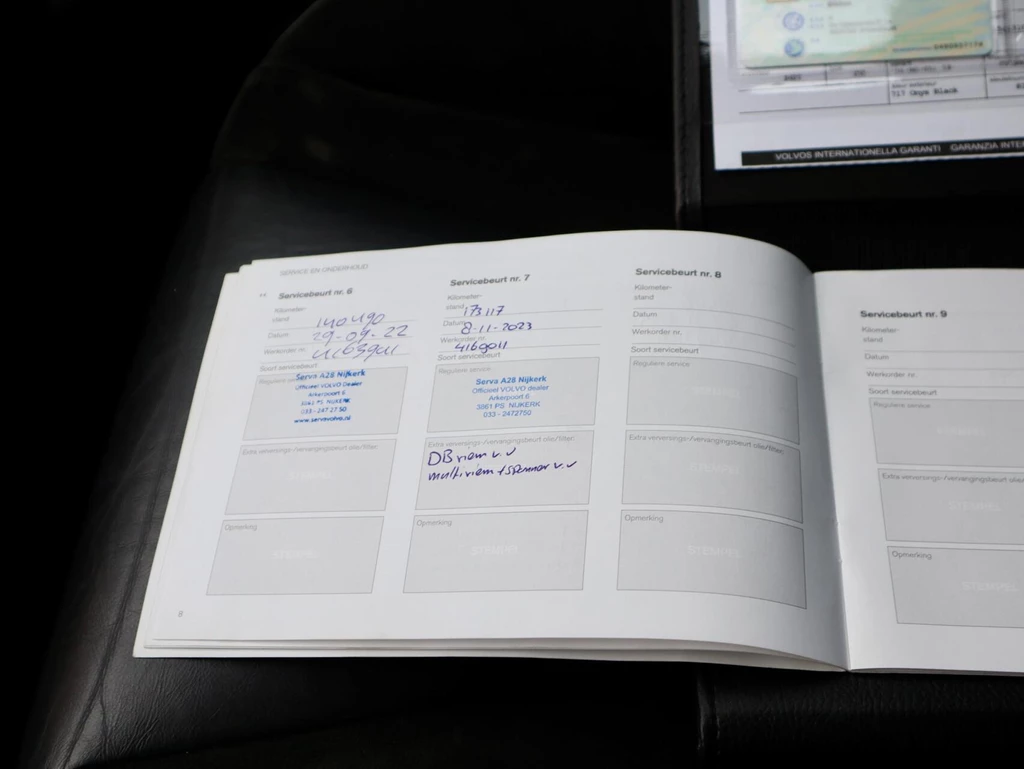 717 Onyx Black
VOLVOS INTERNATIONELLA GARANTI GARANZIA INTE
SERVICE EN ONDERHOUD
Servicebeurt nr. 6
Kilometer-
stand 140490
Datum 29-09-22
Werkorder nr.
Soort servicebeurt
Reguliere
Serva A28 Nijkerk
Officieel VOLVO Dealer
Arkerpoort 6
3861 PS NIJKERK
033 - 247 27 50
www.servavolvo.nl
Extra verversings-/vervangingsbeurt olie/filter:
STEMPEL
Opmerking
STEMPEL
8
Servicebeurt nr. 7
Kilometer-
stand 173117
Datum 8-11-2023
Werkorder nr. 4169011
Soort servicebeurt
Reguliere service
Serva A28 Nijkerk
Officieel VOLVO dealer
Arkerpoort 6
3861 PS NIJKERK
033 - 2472750
Extra verversings-/vervangingsbeurt olie/filter:
DB riem v.v
multiriem + spanner v.v
Opmerking
STEMPEL
Servicebeurt nr. 8
Kilometer-
stand
Datum
Werkorder nr.
Soort servicebeurt
Reguliere service
STEMPEL
Extra verversings-/vervangingsbeurt olie/filter:
STEMPEL
Opmerking
STEMPEL
Servicebeurt nr. 9
Kilometer-
stand
Datum
Werkorder nr.
Soort servicebeurt
Reguliere service
STEMPEL
Extra verversings-/vervangingsbeurt olie/
STEMPEL
Opmerking
STEMPEL